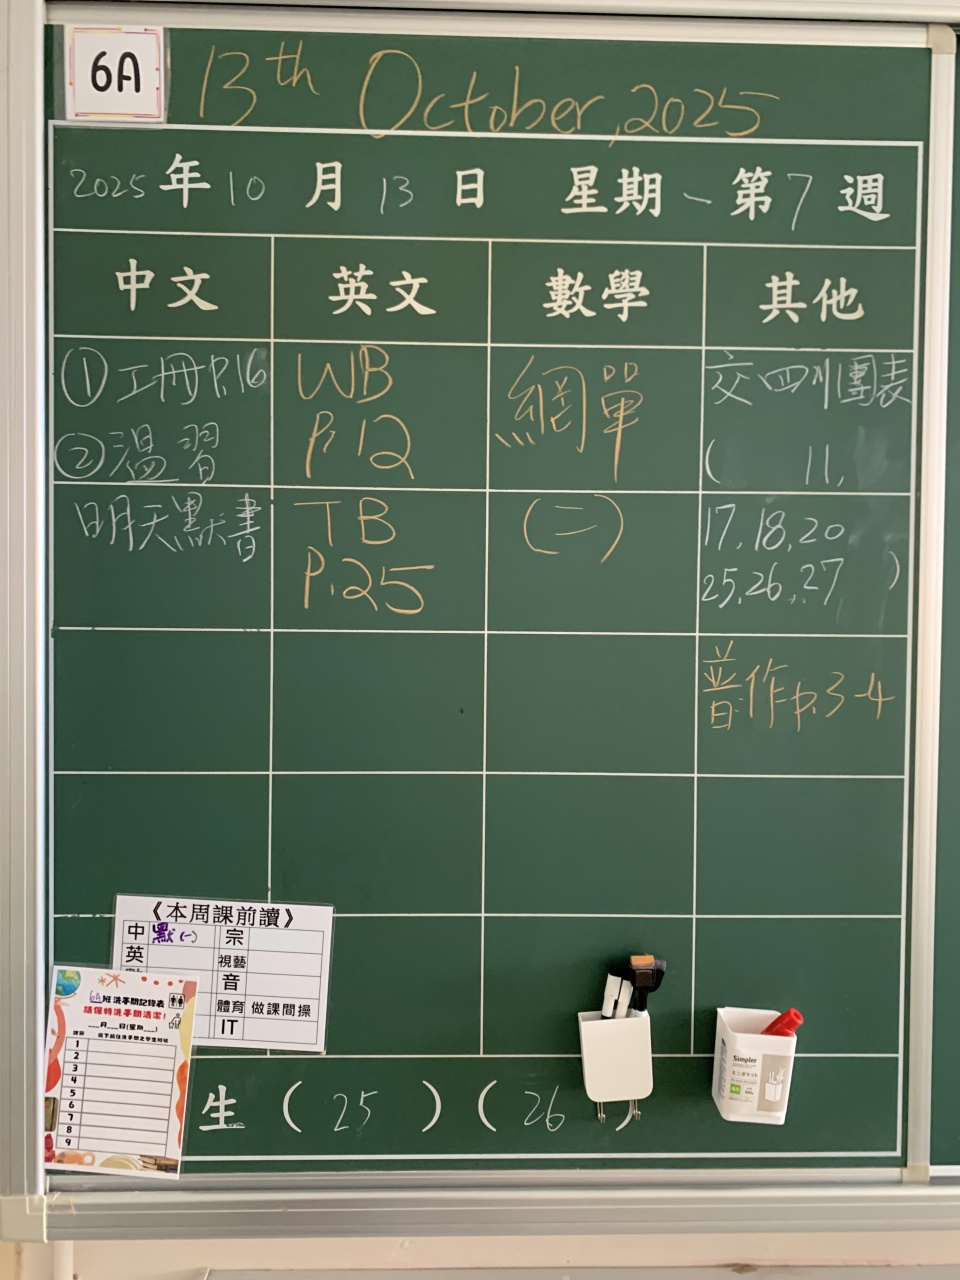 6A
13th October, 2025
2025年10月13日 星期一第7週
中文 英文 數學 其他
①工冊P.16
②溫習
明天默書
WB
P.12
TB
P.25
網單
(二)
交四川團表
( 11,
17, 18, 20
25, 26, 27 )
普作p.3-4
《本周課前讀》
中 默(一) 宗
英 視藝
音
體育 做課間操
IT
6A班洗手間記錄表
請保持洗手間清潔!
___月___日(星期___)
1
2
3
4
5
6
7
8
9
生 (25) (26)
Simpler